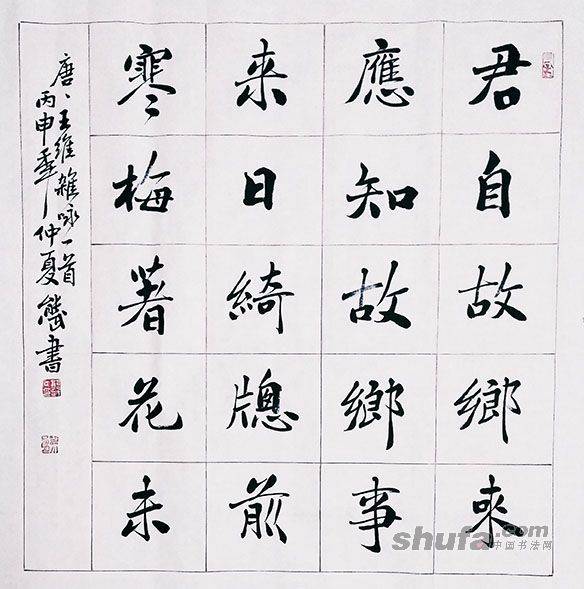 君自故鄉來
應知故鄉事
来日綺牕前
寒梅著花未
唐、王維雜咏一首
丙申年仲夏書
shufa.com
中国书法网